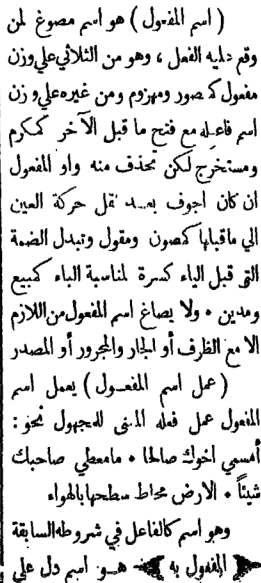 ( اسم المفعول ) هو اسم مصوغ لمن
وقع عليه الفعل ، وهو من الثلاثي علي وزن
مفعول كمنصور ومهزوم ومن غيره علي وزن
اسم فاعله مع فتح ما قبل الآخر كمكرم
ومستخرج لكن تحذف منه واو المفعول
ان كان أجوف بعد نقل حركة العين
الي ماقبلها كمصون ومقول وتبدل الضمة
التي قبل الياء كسرة لمناسبة الياء كمبيع
ومدين • ولا يصاغ اسم المفعول من اللازم
الا مع الظرف أو الجار والمجرور أو المصدر
( عمل اسم المفعول ) يعمل اسم
المفعول عمل فعله المبنى للمجهول نحو :
أمسمي اخوك صالحا • مامعطي صاحبك
شيئاً • الارض محاط سطحها بالهواء
وهو اسم كالفاعل في شروطه السابقة
المفعول به هو اسم دل علي